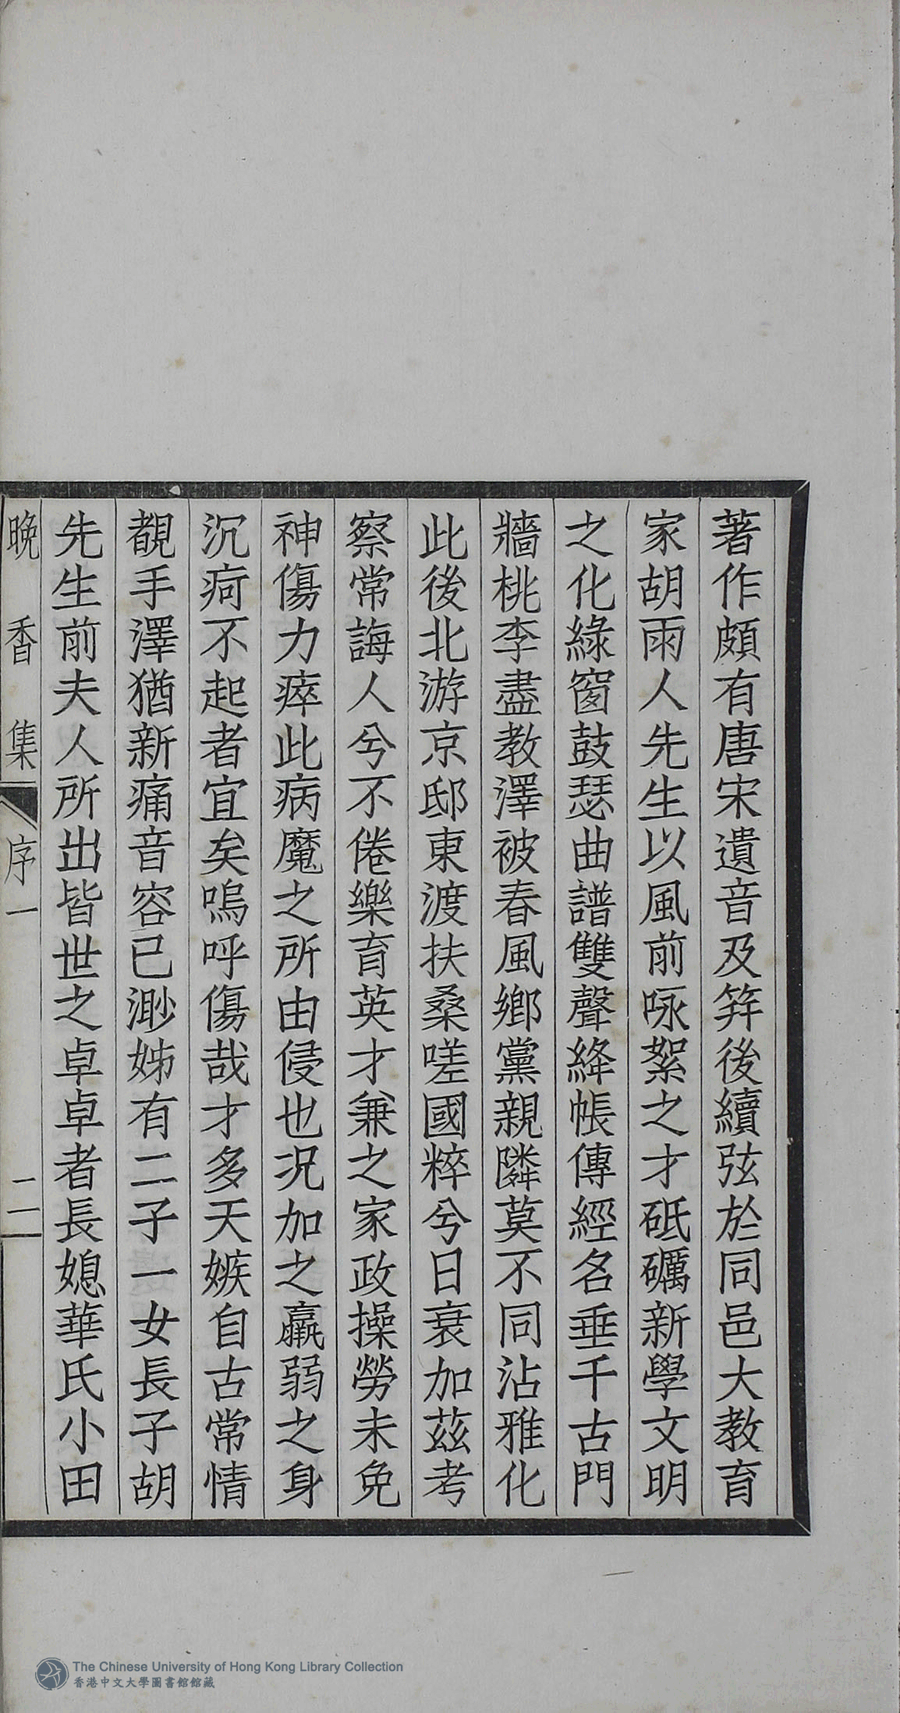 著作頗有唐宋遺音及笄後續弦於同邑大教育
家胡雨人先生以風前咏絮之才砥礪新學文明
之化綠窗鼓瑟曲譜雙聲絳帳傳經名垂千古門
牆桃李盡教澤被春風鄉黨親隣莫不同沾雅化
此後北游京邸東渡扶桑嗟國粹兮日衰加茲考
察常誨人兮不倦樂育英才兼之家政操勞未免
神傷力瘁此病魔之所由侵也况加之羸弱之身
沉疴不起者宜矣嗚呼傷哉才多天嫉自古常情
覩手澤猶新痛音容已渺姊有二子一女長子胡
先生前夫人所出皆世之卓卓者長媳華氏小田
晚香集 序一 二
The Chinese University of Hong Kong Library Collection
香港中文大學圖書館館藏